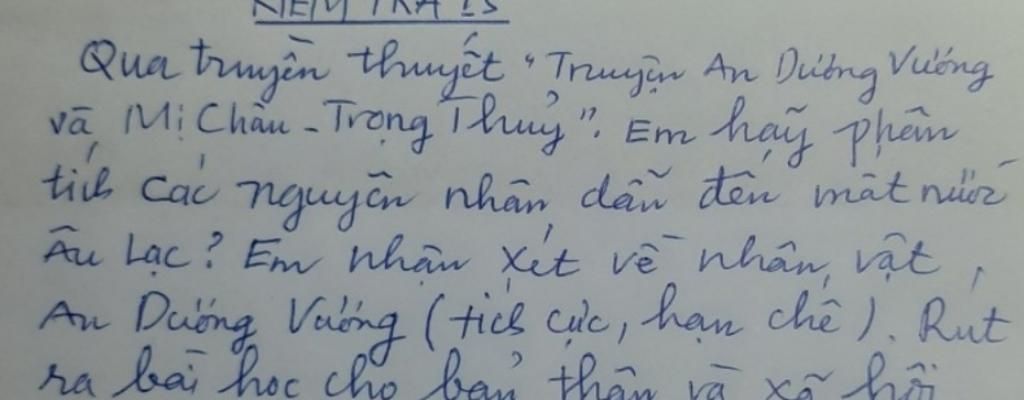 KIỂM TRA 15
Qua truyền thuyết "Truyện An Dương Vương
và Mị Châu - Trọng Thuỷ". Em hãy phân
tích các nguyên nhân dẫn đến mất nước
Âu Lạc? Em nhận xét về nhân vật
An Dương Vương (tích cực, hạn chế). Rút
ra bài học cho bản thân và xã hội